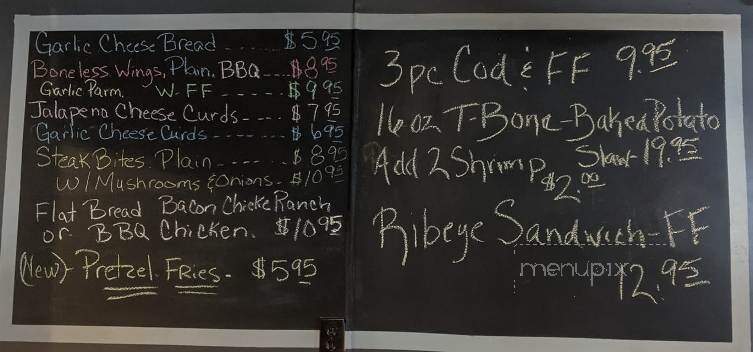 Garlic Cheese Bread ---- $5.95
Boneless Wings, Plain, BBQ --- $8.95
Garlic Parm. W-FF ---- $9.95
Jalapeno Cheese Curds --- $7.95
Garlic Cheese Curds ----- $6.95
Steak Bites. Plain ----- $8.95
w/Mushrooms & Onions - $10.95
Flat Bread Bacon Chicke Ranch
or BBQ Chicken. $10.95
(New)- Pretzel Fries - $5.95
3pc Cod & FF 9.95
16 oz T-Bone-Baked Potato
Slaw- 19.95
Add 2 Shrimp $2.00
Ribeye Sandwich-FF
12.95
menupix